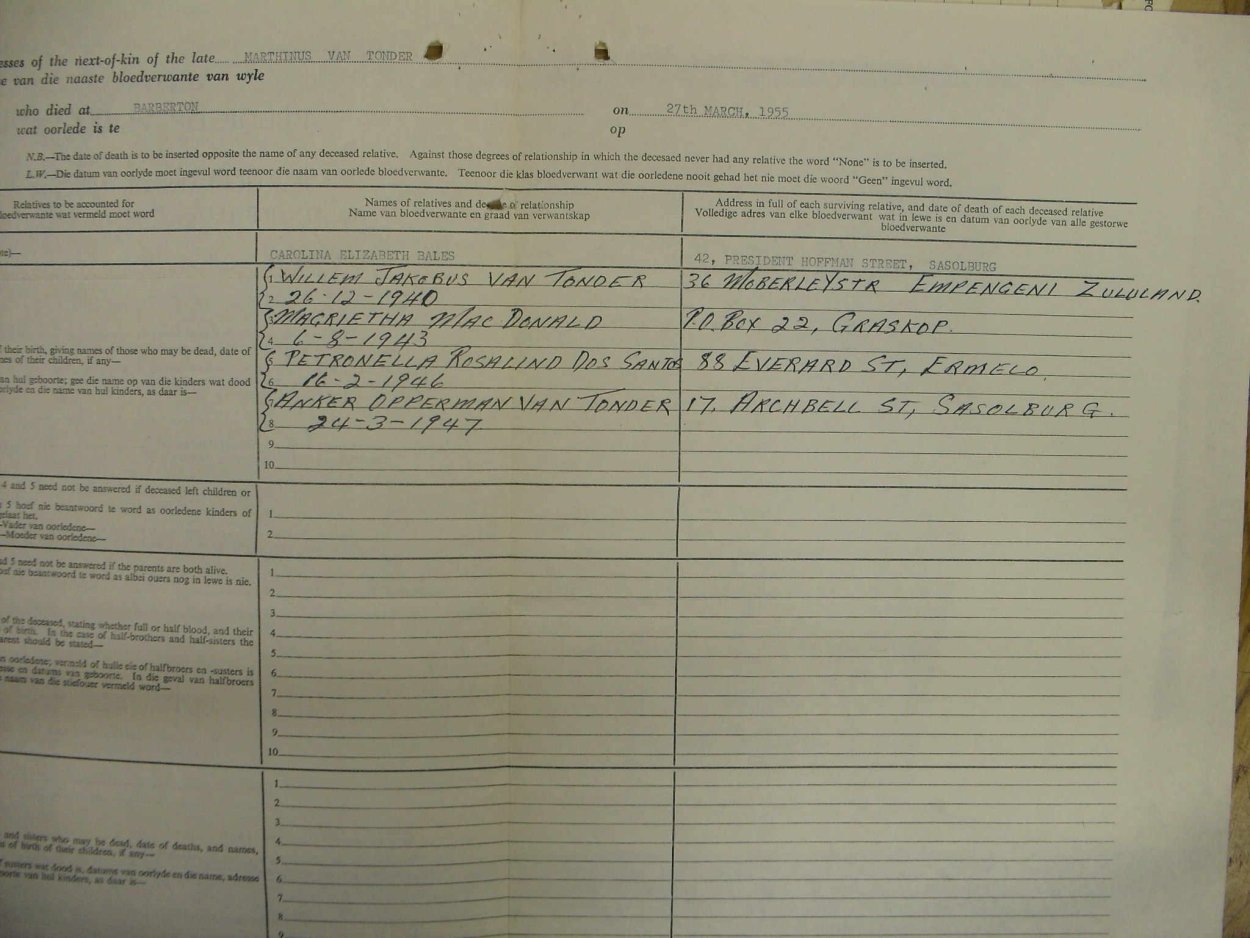 esses of the next-of-kin of the late MARTHINUS VAN TONDER
e van die naaste bloedverwante van wyle
who died at BARBERTON on 27th MARCH, 1955
wat oorlede is te op
N.B.—The date of death is to be inserted opposite the name of any deceased relative. Against those degrees of relationship in which the decesaed never had any relative the word "None" is to be inserted.
L.W.—Die datum van oorlyde moet ingevul word teenoor die naam van oorlede bloedverwante. Teenoor die klas bloedverwant wat die oorledene nooit gehad het nie moet die woord "Geen" ingevul word.
Relatives to be accounted for
loedverwante wat vermeld moet word
Names of relatives and of relationship
Name van bloedverwante en graad van verwantskap
Address in full of each surviving relative, and date of death of each deceased relative
Volledige adres van elke bloedverwant wat in lewe is en datum van oorlyde van alle gestorwe
bloedverwante
CAROLINA ELIZABETH BALES 42, PRESIDENT HOFFMAN STREET, SASOLBURG
1 WILLEM JAKOBUS VAN TONDER 36 MOBERLEYSTR EMPENGENI ZULULAND.
2 26-12-1940
3 MAGRIETHA MAC DONALD P.O. BOX 22, GRASKOP.
4 6-8-1943
5 PETRONELLA ROSALIND DOS SANTOS 88 EVERARD ST, ERMELO.
6 16-2-1946
7 ANKER OPPERMAN VAN TONDER 17, ARCHBELL ST, SASOLBURG.
8 24-3-1947
9
10
their birth, giving names of those who may be dead, date of
nes of their children, if any—
an hul geboorte; gee die name op van die kinders wat dood
orlyde en die name van hul kinders, as daar is—
4 and 5 need not be answered if deceased left children or
5 hoef nie beantwoord te word as oorledene kinders of
gelaat het.
-Vader van oorledene—
—Moeder van oorledene—
1
2
d 5 need not be answered if the parents are both alive.
oef nie beantwoord te word as albei ouers nog in lewe is nie.
of the deceased, stating whether full or half blood, and their
of birth. In the case of half-brothers and half-sisters the
arent should be stated—
n oorledene; vermeld of hulle eie of halfbroers en -susters is
esse en datums van geboorte. In die geval van halfbroers
naam van die stiefouer vermeld word—
1
2
3
4
5
6
7
8
9
10
and sisters who may be dead, date of deaths, and names,
s of birth of their children, if any—
susters wat dood is, datums van oorlyde en die name, adresse
oorte van hul kinders, as daar is—
1
2
3
4
5
6
7
8
9